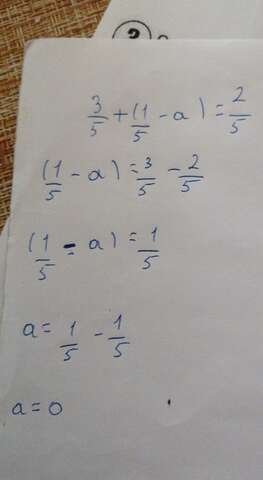 3/5 + (1/5 - a) = 2/5
(1/5 - a) = 3/5 - 2/5
(1/5 - a) = 1/5
a = 1/5 - 1/5
a = 0